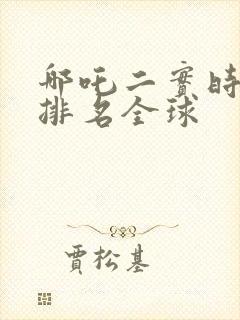 哪吒二實時
排名全球
賈松基